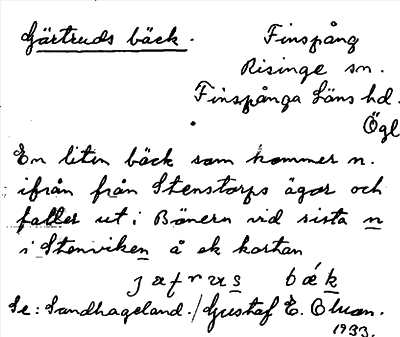 Gärtruds bäck.
Finspång
Risinge sn.
Finspånga Läns hd.
Ögl
En liten bäck som kommer n.
ifrån från Stenstorps ägor och
faller ut i Bönern vid sista n
i Stenviken å ek kartan
bäk
Se: Sandhageland. / Gustaf E. Olson.
1933.